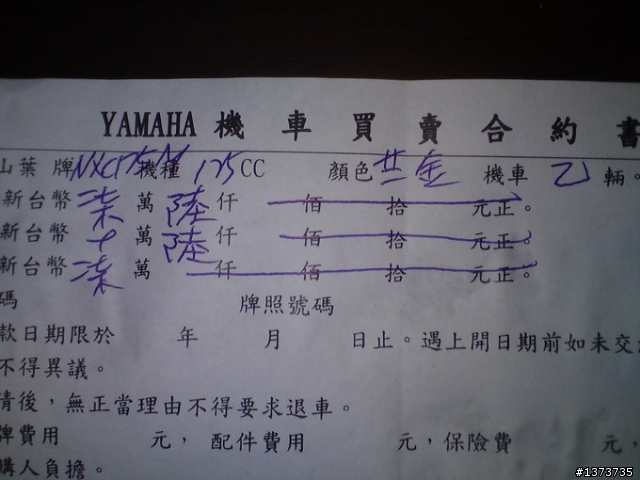 YAMAHA 機車買賣合約書
山葉牌 機種 125 CC 顏色 金 機車 乙 輛。
新台幣 柒 萬 陸 仟 佰 拾 元正。
新台幣 萬 陸 仟 佰 拾 元正。
新台幣 柒 萬 仟 佰 拾 元正。
碼 牌照號碼
款日期限於 年 月 日止。遇上開日期前如未交
不得異議。
清後，無正當理由不得要求退車。
牌費用 元，配件費用 元，保險費 元，
購人負擔。
#1373735